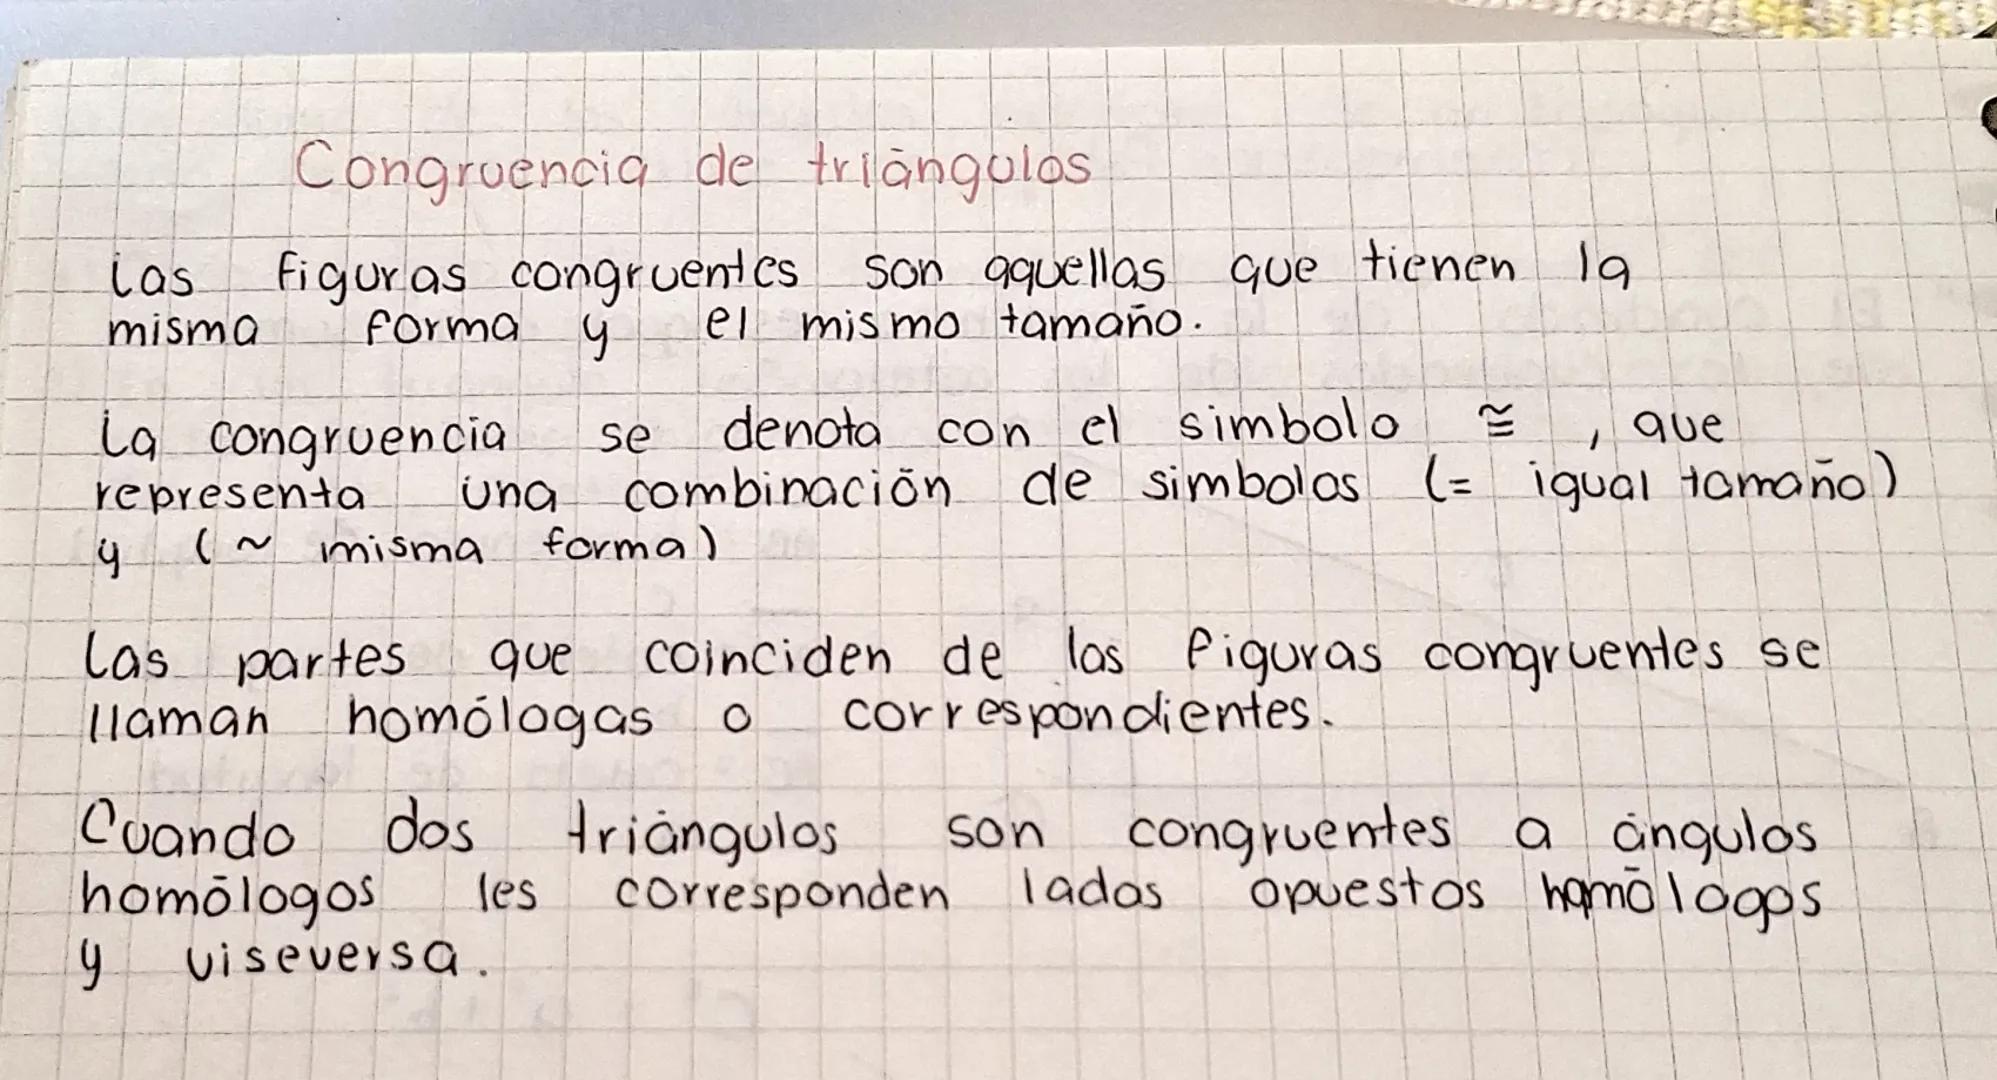 Congruencia de triángulos
Las figuras congruentes son aquellas que tienen la
misma forma y el mismo tamaño.
La congruencia se denota con el simbolo ≅ , que
representa una combinación de simbolos (= igual tamaño)
y (~ misma forma)
Las partes que coinciden de las figuras congruentes se
llaman homólogas o correspondientes.
Cuando dos triángulos son congruentes a ángulos
homólogos les corresponden lados opuestos homólogos
y viseversa.